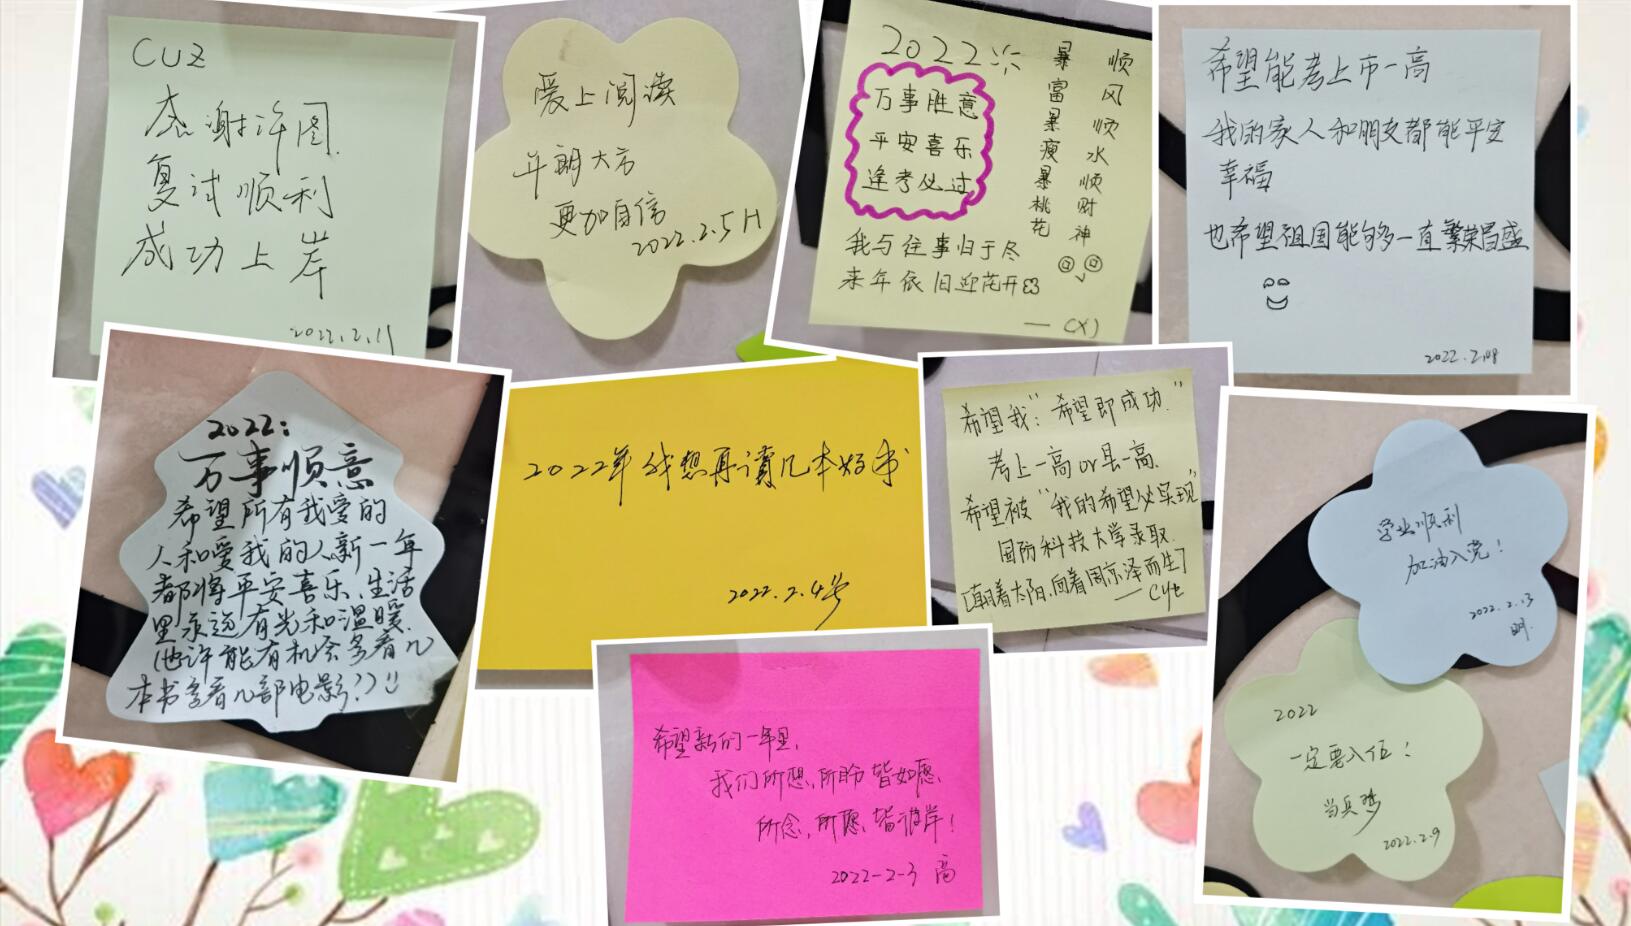 CUZ
感谢许图
复试顺利
成功上岸
2022.2.11
爱上阅读
开朗大方
更加自信
2022.2.5H
2022
万事胜意
平安喜乐
逢考必过
顺风顺水顺财神
暴富暴瘦暴桃花
我与往事归于尽
来年依旧迎花开
— CXJ
希望能考上市一高
我的家人和朋友都能平安
幸福
也希望祖国能够一直繁荣昌盛
2022.2.08
2022:
万事顺意
希望所有我爱的
人和爱我的人新一年
都将平安喜乐、生活
里永远有光和温暖.
(也许能有机会多看几
本书多看几部电影!)
2022年我想再读几本好书
2022.2.4号
希望我:“希望即成功.”
考上一高or县一高.
希望被“我的希望必实现”
国防科技大学录取.
[朝着太阳,向着周京泽而生]
— Cyt
学业顺利
加油入党!
2022.2.13
明.
2022
一定要入伍!
当兵梦
2022.2.9
希望新的一年里,
我们所想,所盼皆如愿、
所念,所愿、皆彼岸!
2022-2-3 高